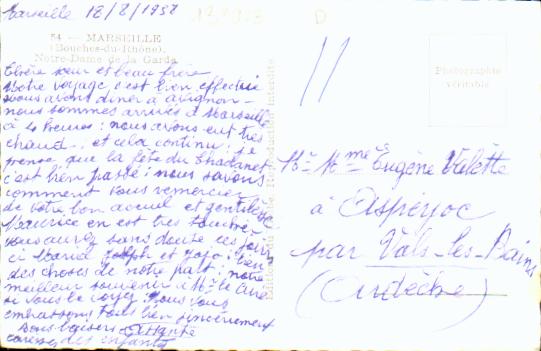 Marseille 18/8/1937
54 - MARSEILLE
(Bouches-du-Rhône).
Notre-Dame de la Garde
Chère sœur et beau frère
Notre voyage c'est bien effectué
nous avons diner à avignon -
nous sommes arrivés à Marseille
à 4 heures : nous avons eut très
chaud - et cela continu : je
pense que la fête du
c'est bien passé : nous savons
comment vous remercier
de votre bon accueil et gentillesse
Maurice en est très touché
vous aurez sans doute ces jours
ci Marid Joseph et Jojo : bien
des choses de notre part : notre
meilleur souvenir à Mr le Curé
si vous le voyez. Nous vous
embrassons tous bien sincèrement
Bons baisers
caresses des enfants
Photographie
véritable
Mr Mme Eugène Valette
à Asperjoc
par Vals-les-Bains
(Ardèche)